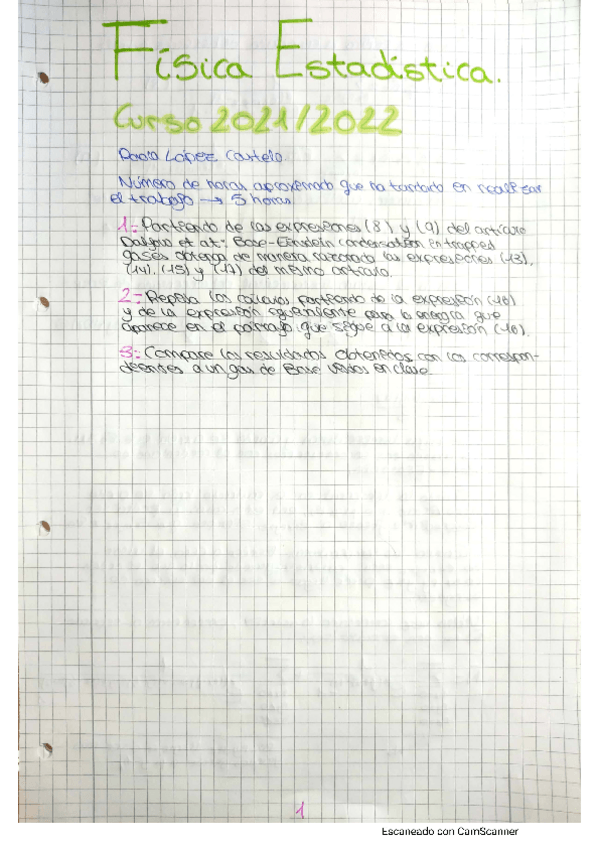 Física Estadística.
Curso 2021/2022
Paola López Castelo.
Número de horas aproximado que ha tardado en realizar
el trabajo → 5 horas
1:- Partiendo de las expresiones (8) y (9) del artículo
Dalfovo et at.: Bose-Einstein condensation in trapped
gases obtenga de manera razonada las expresiones (13),
(14), (15) y (17) del mismo artículo.
2:- Repita los cálculos partiendo de la expresión (16)
y de la expresión equivalente para la energía que
aparece en el párrafo que sigue a la expresión (16).
3:- Compare los resultados obtenidos con los correspon-
dientes a un gas de Bose vistos en clase.
1
Escaneado con CamScanner